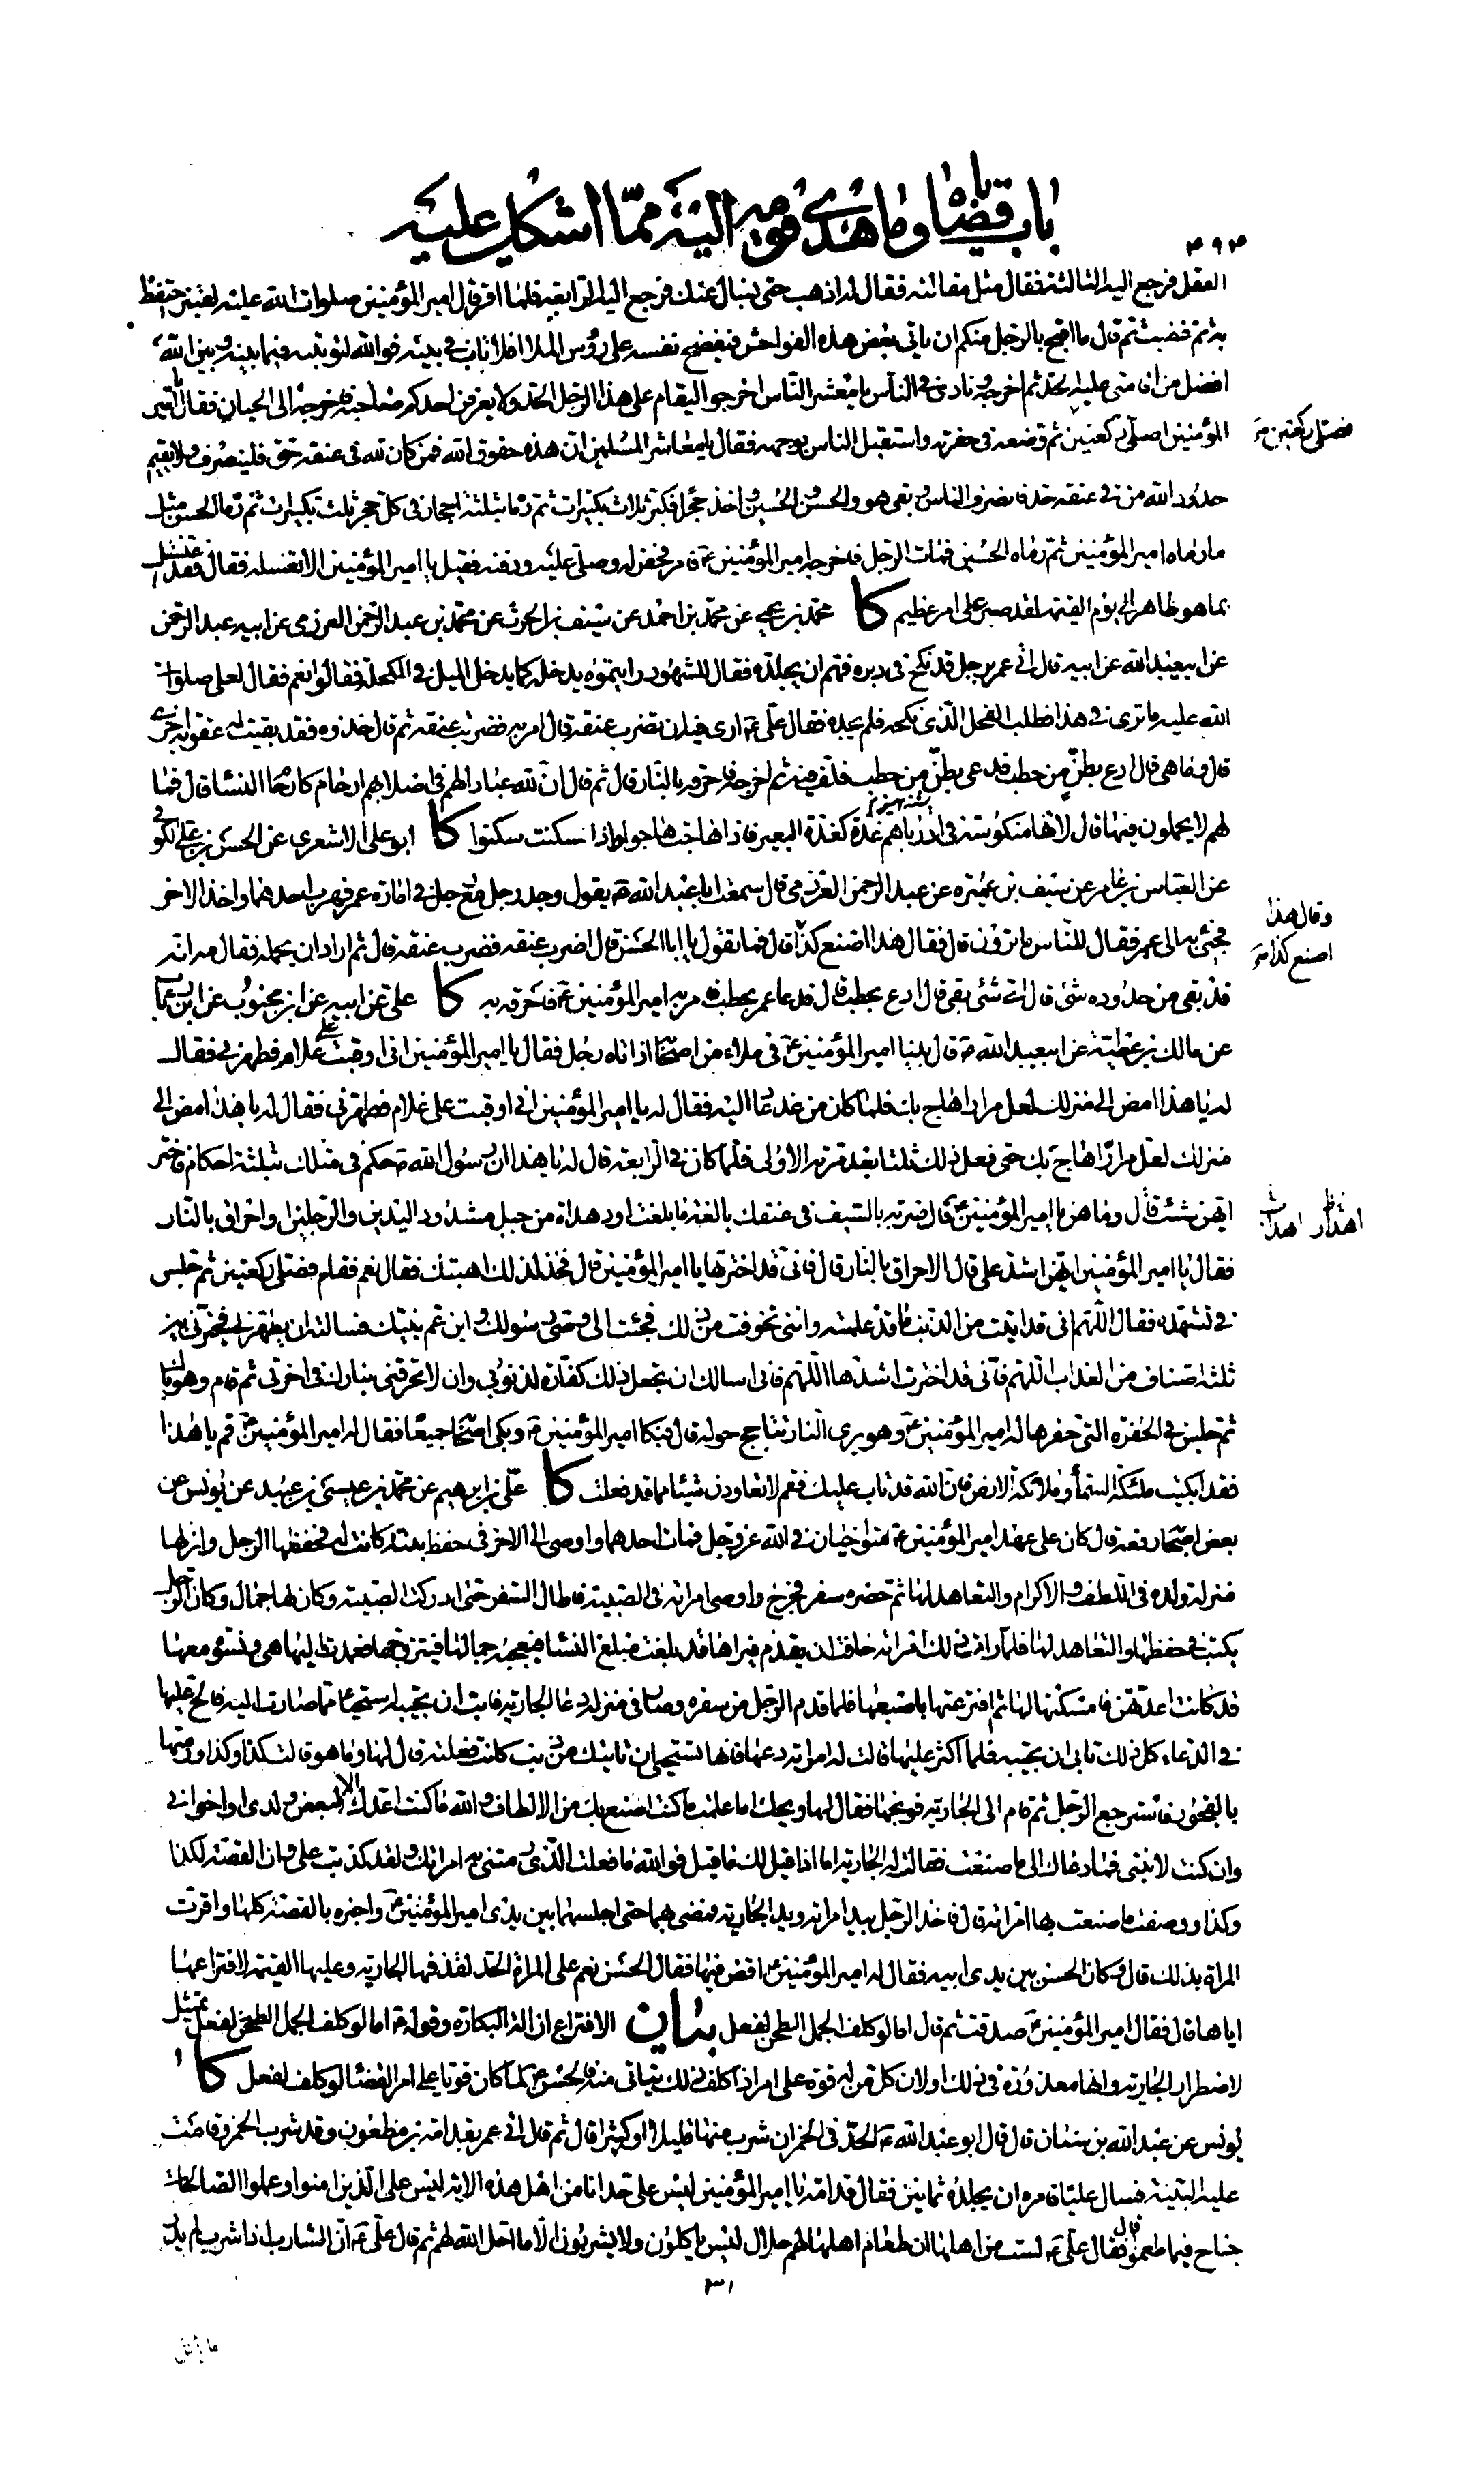 باب قضاياه وما هدى قومه اليه مما اشكل عليه
۴۹۴
العقل فرجع اليه الثالثة فقال مثل مقالته فقال له اذهب حتى نسال عنك فرجع اليه الرابعة فلما اقر قال امير المؤمنين صلوات الله عليه لقنبر احتفظ
به ثم غضب ثم قال ما اقبح بالرجل منكم ان ياتى بعض هذه الفواحش فيفضح نفسه على رؤس الملا افلا تاب فى بيته فوالله لتوبته فيما بينه وبين الله
افضل من اقامتى عليه الحد ثم اخرجه ونادى فى الناس يا معشر الناس اخرجوا ليقام على هذا الرجل الحد ولا يعرفن احدكم صاحبه فاخرجه الى الجبان فقال يا امير
المؤمنين اصلى ركعتين ثم وضعه فى حفرته واستقبل الناس بوجهه فقال يا معاشر المسلمين ان هذه حقوق الله فمن كان لله فى عنقه حق فلينصرف ولا يقيم
فصلى ركعتين
حدود الله من فى عنقه حد فانصرف الناس وبقى هو والحسن والحسين واخذ حجرا فكبر ثلاث تكبيرات ثم رماه بثلثة احجار فى كل حجر ثلث تكبيرات ثم رماه الحسن مثل
ما رماه امير المؤمنين ثم رماه الحسين فمات الرجل فاخرجه امير المؤمنين ع فامر فحفر له وصلى عليه ودفنه فقيل يا امير المؤمنين الا تغسله فقال قد اغتسل
بما هو طاهر الى يوم القيمة لقد صبر على امر عظيم كا محمد بن يحيى عن محمد بن احمد عن سيف بن الحرث عن محمد بن عبد الرحمن العرزمى عن ابيه عبد الرحمن
عن ابيعبد الله عن ابيه قال اتى عمر برجل قد نكح فى دبره فهم ان يجلده فقال للشهود رايتموه يدخله كما يدخل الميل فى المكحلة فقالوا نعم فقال لعلى صلوات
الله عليه ما ترى فى هذا فطلب الفحل الذى نكحه فلم يجده فقال على ع ارى فيه ان تضرب عنقه قال امر به فضربت عنقه ثم قال خذوه فقد بقيت له عقوبة اخرى
قال وما هى قال ادع بطن من حطب فدعى بطن من حطب فلف فيه ثم اخرجه فاحرقه بالنار قال ثم قال ان لله عبادا لهم فى اصلابهم ارحام كارحام النساء قال فما
لهم لا يحملون فيها قال لانها منكوسة فى ادبارهم غدة كغدة البعير فاذا هاجت هاجوا واذا سكنت سكنوا كا ابو على الاشعرى عن الحسن بن على الكوفى
عن العباس بن عامر عن سيف بن عميرة عن عبد الرحمن العرزمى قال سمعت ابا عبد الله ع يقول وجد رجل مع رجل فى امارة عمر فهرب احدهما واخذ الاخر
فجئ به الى عمر فقال للناس ما ترون قال فقال هذا اصنع كذا قال فما تقول يا ابا الحسن قال اضرب عنقه فضرب عنقه قال ثم اراد ان يحمله فقال مه انه
وقال هذا
اصنع كذا
قد بقى من حدوده شئ قال اى شئ بقى قال ادع بحطب قال فدعا عمر بحطب فامر به امير المؤمنين ع فاحرق به كا على عن ابيه عن ابن محبوب عن ابن رئاب
عن مالك بن عطية عن ابيعبد الله ع قال بينا امير المؤمنين ع فى ملاء من اصحابه اذ اتاه رجل فقال يا امير المؤمنين انى اوقبت على غلام فطهرنى فقال
له يا هذا امض الى منزلك لعل مرارا هاج بك فلما كان من غد عاد اليه فقال له يا امير المؤمنين انى اوقبت على غلام فطهرنى فقال له يا هذا امض الى
منزلك لعل مرارا هاج بك حتى فعل ذلك ثلثا بعد مرته الاولى فلما كان فى الرابعة قال له يا هذا ان رسول الله ص حكم فى مثلك بثلثة احكام فاختر
ايهن شئت قال وما هن يا امير المؤمنين ع قال ضربة بالسيف فى عنقك بالغة ما بلغت او دهداة من جبل مشدود اليدين والرجلين او احراق بالنار
فقال يا امير المؤمنين ايهن اشد على قال الاحراق بالنار قال فانى قد اخترتها يا امير المؤمنين قال فخذ لذلك اهبتك فقال نعم فقام فصلى ركعتين ثم جلس
فى تشهده فقال اللهم انى قد اتيت من الذنب ما قد علمته واننى تخوفت من ذلك فجئت الى وصى رسولك وابن عم نبيك فسالته ان يطهرنى فخيرنى بين
ثلثة اصناف من العذاب اللهم فانى قد اخترت اشدها اللهم فانى اسالك ان تجعل ذلك كفارة لذنوبى وان لا تحرقنى بنارك فى اخرتى ثم قام وهو باك
ثم جلس فى الحفرة التى حفرها له امير المؤمنين ع وهو يرى النار تتاجج حوله قال فبكا امير المؤمنين ع وبكى اصحابه جميعا فقال له امير المؤمنين ع قم يا هذا
فقد ابكيت ملئكة السماء وملائكة الارض فان الله قد تاب عليك فقم لا تعاودن شيئا مما قد فعلت كا على بن ابرهيم عن محمد بن عيسى بن عبيد عن يونس عن
بعض اصحابه رفعه قال كان على عهد امير المؤمنين ع متواخيان فى الله عز وجل فمات احدهما واوصى الى الاخر فى حفظ بنية كانت له فحفظها الرجل وانزلها
منزلة ولده فى اللطف والاكرام والتعاهد لها ثم حضره سفر فخرج واوصى امراته فى الصبية فاطال السفر حتى ادركت الصبية وكان لها جمال وكان الرجل
يكتب فى حفظها والتعاهد لها فلما رات ذلك امراته خافت ان يقدم فيراها قد بلغت مبلغ النساء فيعجبه جمالها فيتزوجها فعمدت اليها هى ونسوة معها
قد كانت اعدتهن فامسكنها لها ثم افترعتها باصبعها فلما قدم الرجل من سفره وصار فى منزله دعا الجارية فابت ان تجيبه استحياء مما صارت اليه فالح عليها
فى الدعاء كل ذلك تابى ان تجيبه فلما اكثر عليها قالت له امراته دعها فانها تستحيى ان تاتيك من ذنب كانت فعلته قال لها وما هو قالت كذا وكذا ورمتها
بالفجور فاسترجع الرجل ثم قام الى الجارية فوبخها فقال لها ويحك اما علمت ما كنت اصنع بك من الالطاف والله ما كنت اعدك الا لبعض ولدى او اخوانى
وان كنت لابنتى فما دعاك الى ما صنعت فقالت له الجارية اما اذا قيل لك ما قيل فوالله ما فعلت الذى رمتنى به امراتك ولقد كذبت على وان القصة لكذا
وكذا ووصفت ما صنعت بها امراته قال فاخذ الرجل بيد امراته ويد الجارية فمضى بهما حتى اجلسهما بين يدى امير المؤمنين ع واخبره بالقصة كلها واقرت
المراة بذلك قال وكان الحسن بين يدى ابيه فقال له امير المؤمنين ع اقض فيها فقال الحسن نعم على المراة الحد لقذفها الجارية وعليها القيمة لافتراعها
اياها قال فقال امير المؤمنين ع صدقت ثم قال اما لو كلف الجمل الطحن لفعل بيان الافتراع ازالة البكارة وقوله ع اما لو كلف الجمل الطحن لفعل تمثيل
لاضطرار الجارية وانها معذورة فى ذلك او لان كل من له قوة على امر اذا كلف ذلك يتاتى منه فالحسن ع لما كان قويا على امر القضاء لو كلف لفعل كا
يونس عن عبد الله بن سنان قال قال ابو عبد الله ع الحد فى الخمر ان شرب منها قليلا او كثيرا قال ثم قال اتى عمر بقدامة بن مظعون وقد شرب الخمر وقامت
عليه البينة فسال عليا فامره ان يجلده ثمانين فقال قدامة يا امير المؤمنين ليس على حد انا من اهل هذه الاية ليس على الذين امنوا وعملوا الصالحات
جناح فيما طعموا قال فقال على ع لست من اهلها ان طعام اهلها لهم حلال ليس ياكلون ولا يشربون الا ما احل الله لهم ثم قال على ع ان الشارب اذا شرب لم يدر